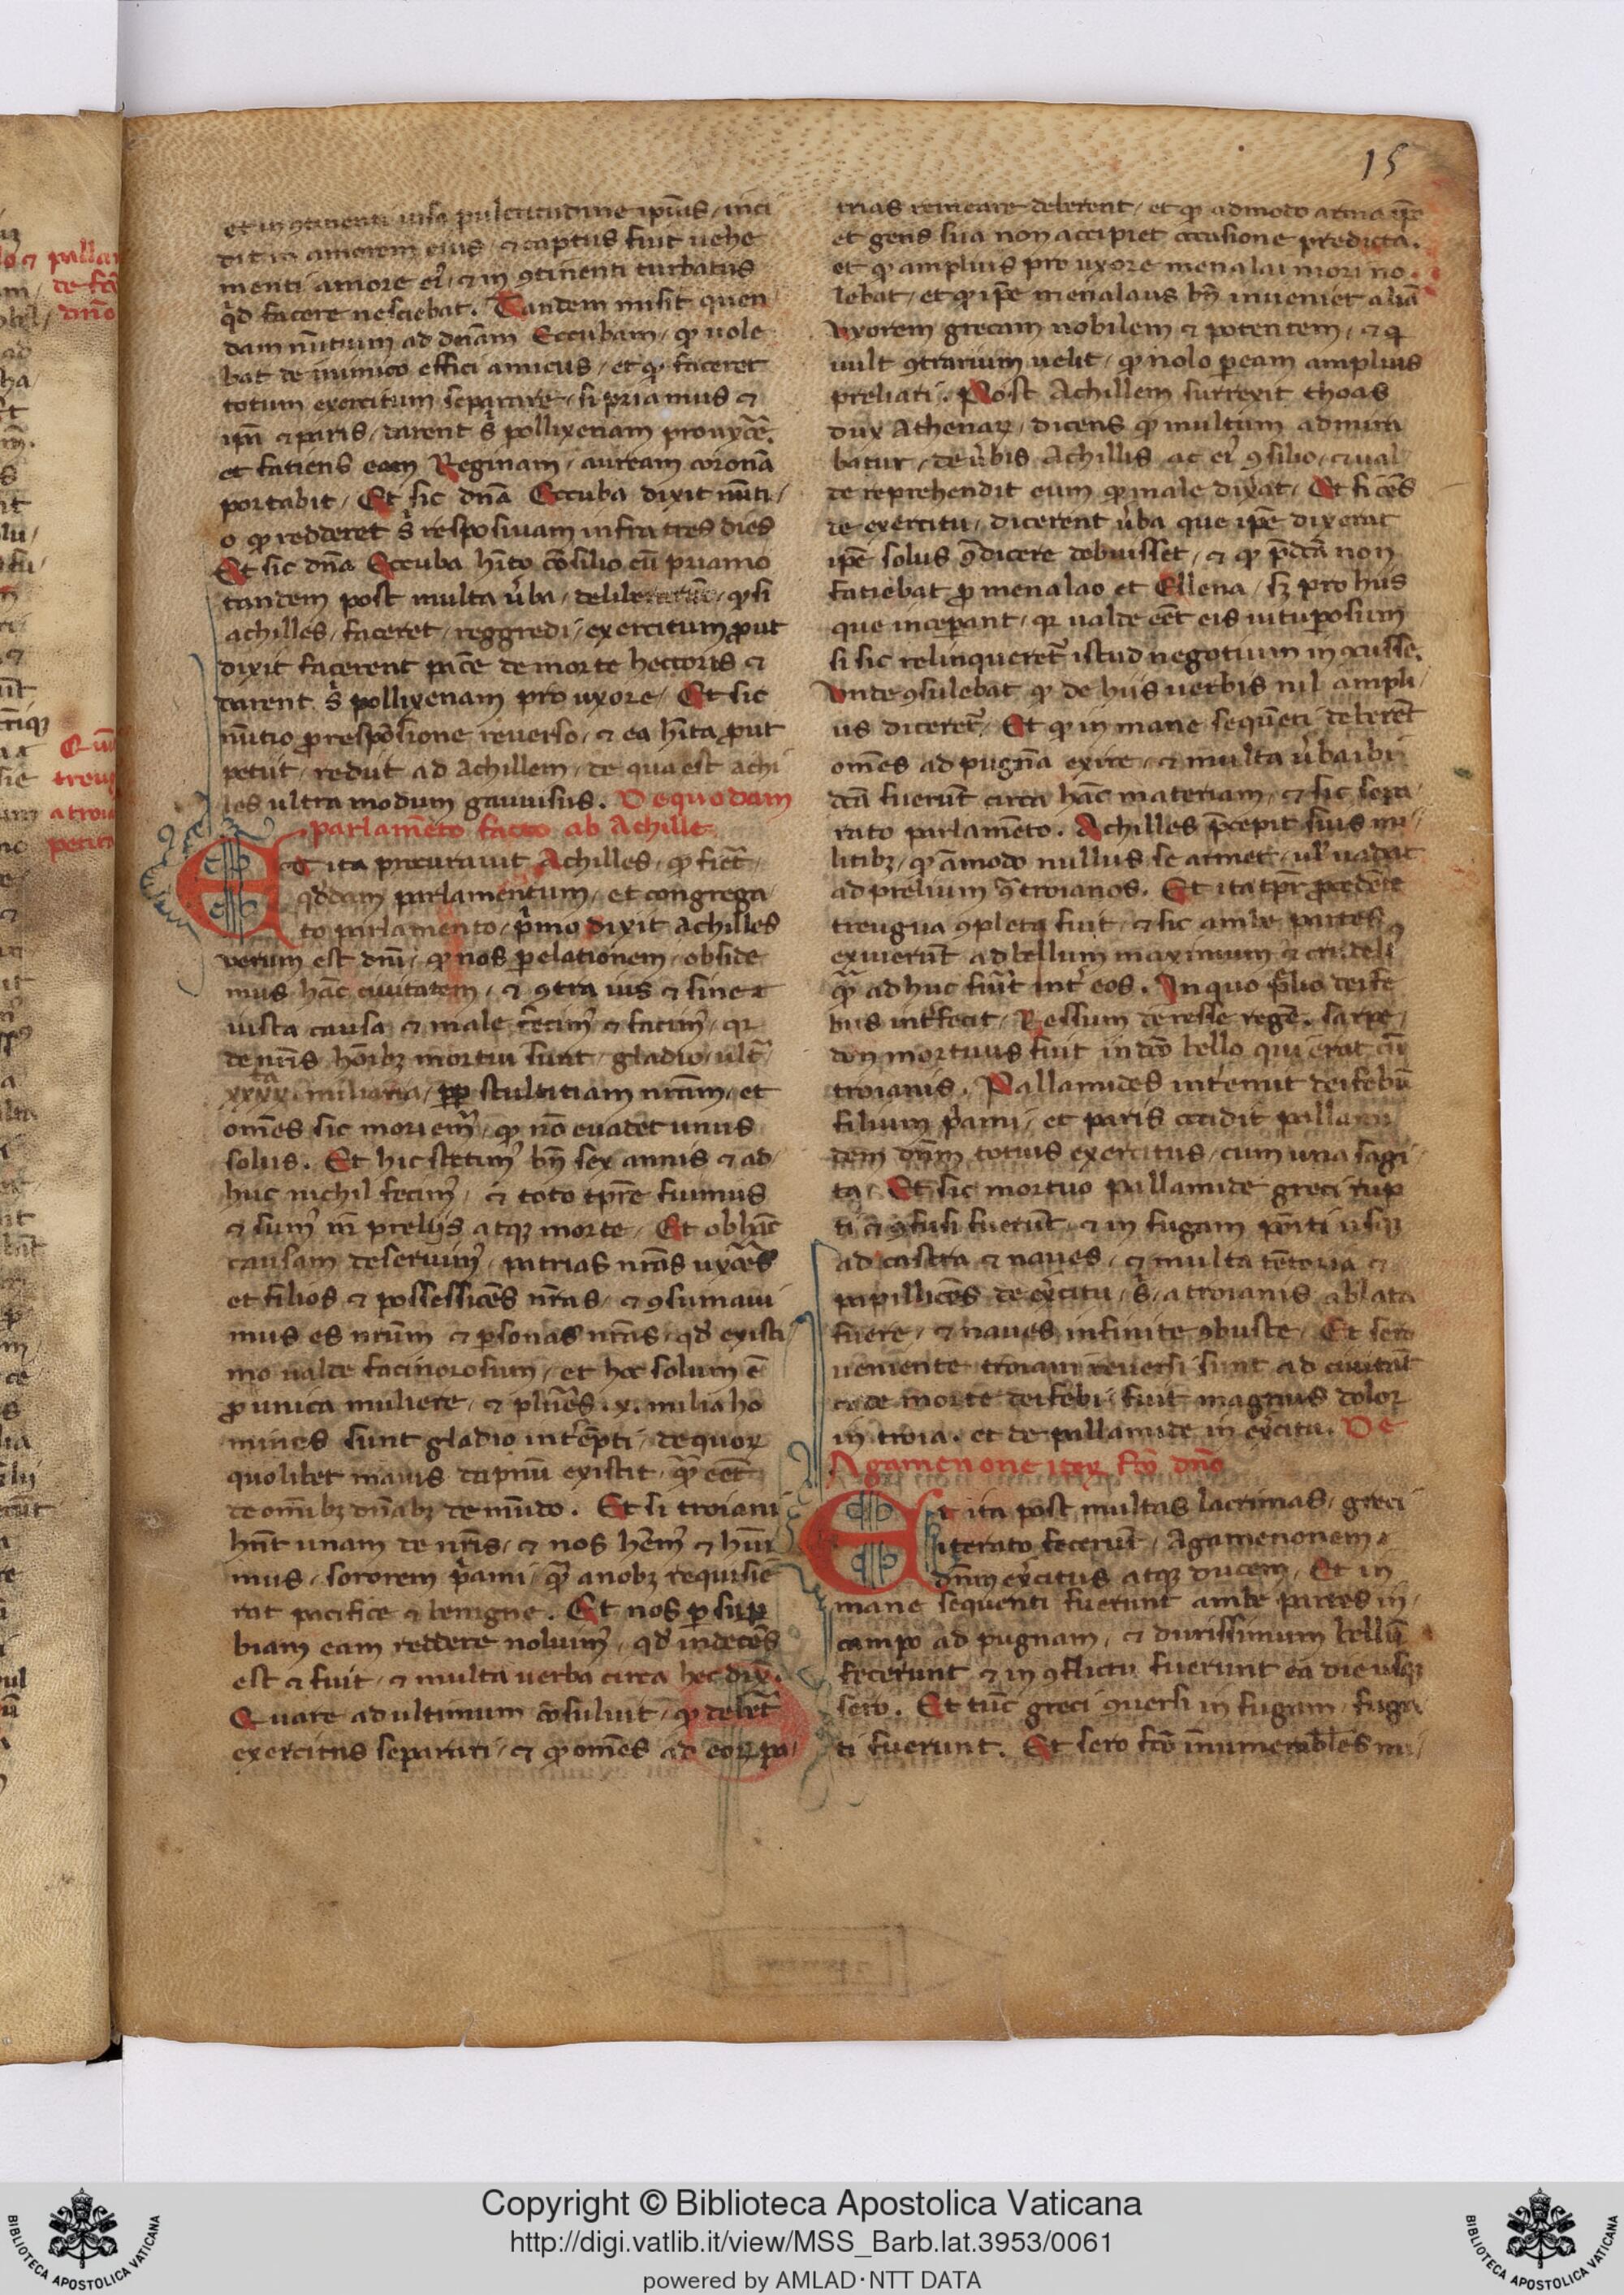 15
et in ꝯtinenti uisa pulcritudine ipi̅us / inci
dit in amorem eius / ⁊ captus fuit uehe
menti amore ei᷒ / ⁊ in ꝯtinenti turbatus
q̇d facere nesciebat. Tandem misit quen
dam nu̅tium ad dn̅am Eccubam / ꝙ uole
bat de inimico effici amicus / et ꝙ faceret
totum exercitum separare / si priamus ⁊
⁊ paris / darent s̉ pollixenam pro
et fatiens eam Reginam / auream corona̅
portabit / Et sic dn̅a Eccuba dixit nu̅ti /
o ꝙ redderet s̉ resposiuam infra tres dies
Et sic dn̅a Eccuba hi̅to co̅silio cu̅ priamo
tandem post multa u̓ba / ꝙ si
achilles / faceret / reggredi / exercitum ꝓut
dixit facerent pace̅ de morte hectoris ⁊
darent s̉ pollixenam pro uxore / Et sic
nu̅tio ꝓ respo̅sione reuerso / ⁊ ea hi̅ta ꝓut
petiit / rediit ad Achillem / de qua est achi
les ultra modum gauuisus. De quodam
parlame̅to facto ab Achille
Et ita procurauit Achilles / ꝙ fiet̅ /
qd̓dam parlamentum / et congrega
to parlamento / p̓mo dixit Achilles
verum est dn̅i / ꝙ nos ꝑ elationem / obside
mus ha̅c ciuitatem / ⁊ ꝯtra ius ⁊ sine
iusta causa ⁊ male fecim᷒ ⁊ facim᷒ / qr
de nr̅is ho̅ibꝫ mortui sunt / gladio / ult̅
xxxx miliaria / ꝓp stultitiam nr̅am / et
om̅es sic moriem᷒ / ꝙ no̅ euadet unus
solus. Et hic stetim᷒ bn̅ sex annis ⁊ ad /
huc nichil fecim᷒ / ⁊ toto tpr̅e fuimus
⁊ sum᷒ in preliis atqꝫ morte / Et ob ha̅c
causam deseruim᷒ / patrias nr̅as uxo̅es
et filios ⁊ possessio̅es nr̅as / ⁊ ꝯsumaui
mus es nr̅um ⁊ ꝑsonas nr̅as / qd̓ existi /
mo ualde facinorosum / et hoc solum e̅
ꝓ unica muliere / ⁊ plur̅es .x. milia ho
mines sunt gladio int̓e̅pti / de quoꝝ
quolibet maius dapnu̅ existit / qͣ̅ eet̅
de om̅ibꝫ dn̅abꝫ de mu̅do. Et si troiani
hn̅t unam de nr̅is / ⁊ nos hem̅᷒ ⁊ hui̅
mus / sororem p̓ami / qͣ̅ a nobꝫ requisie̅
rat pacifice ⁊ benigne. Et nos ꝑ suꝑ
biam eam reddere noluim᷒ / qd̓ indece̅s
est ⁊ fuit / ⁊ multa verba circa hec dix̅.
Quare ad ultimum co̅suluit / ꝙ debet̅
exercitus separari / ⁊ ꝙ om̅es ad eoꝝ pa /
trias remeare deberent / et ꝙ admodo arma ip̅e
et gens sua non accipiet occasione predicta.
et ꝙ amplius pro uxore menalai mori no
lebat / et ꝙ ip̅e menalaus bn̅ inueniet alia̅
vxorem grecam nobilem ⁊ potentem / ⁊ q
uult ꝯtrarium uelit / ꝙ nolo ꝑ eam amplius
preliari. Post Achillem surrexit thoas
dux Athenaꝝ / dicens ꝙ multum admira
batur / de u̓bis Achillis ac ei᷒ ꝯsilio / ⁊ ual
de reprehendit eum ꝙ male dix̓at / Et si
de exercitu / dicerent u̓ba que ip̅e dixerat
ip̅e solus ꝯ̅dicere debuisset / ⁊ ꝙ p̅dc̅a non
fatiebat ꝓ menalao et Ellena / sꝫ pro hiis
que incepant / qr ualde eet̅ eis uituꝑosum
si sic relinqueret̅ istud negotium
Vnde ꝯsulebat ꝙ de hiis uerbis nil ampli /
us diceret̅ / Et ꝙ in mane seque̅ti deberent
om̅es ad pugna̅ exire / ⁊ multa u̓ba ibi
dc̅a fueru̅t circa ha̅c materiam / ⁊ sic sepa /
rato parlame̅to. Achilles p̅cepit suis mi /
litibꝫ / ꝙ a̅modo nullus se armet / ul̓ uadat
ad prelium ꝯ̅ troianos. Et ita tpr̅ procede̅te
treugua ꝯpleta fuit / ⁊ sic ambe partes
exiueru̅t ad bellum maximum ⁊ crudeli᷒
qͣ̅ ad huc fiu̅it int̓ eos. In quo p̓lio deife
bus int̓fecit / Ressum de resse rege̅. Sarpe /
don mortuus fuit in dc̅o bello qui erat cu̅
troianis. Pallamides int̓emit deifebu̅
filium p̓ami / et paris occidit pallami
dem dn̅m totius exercitus / cum una sagi
ta / Et sic mortuo pallamide greci rup
ti ⁊ ꝯfusi fueru̅t ⁊ in fugam po̅iti usqꝫ
ad castra ⁊ naues / ⁊ multa te̅toria ⁊
papillio̅es de ex̓citu / s̉ / a troianis ablata
fuere / ⁊ naues infinite ꝯbuste / Et sero
ueniente troiani reuersi sunt ad ciuitat̅
⁊ de morte deifebi / fuit magnus dolor
in troia. et de pallamide in ex̓citu. De
Agamenone iteꝝ fc̅o dn̅o
Et ita post multas lacrimas / greci
iterato fecerunt / Agamenonem
dn̅m ex̓citus atqꝫ ducem / Et in
mane sequenti fuerunt ambe partes in /
campo ad pugnam / ⁊ durissimum bellu̅
fecerunt ⁊ in ꝯflictu fuerunt ea die usqꝫ
sero. Et tu̅c greci ꝯuersi in fugam / fuga
ti fuerunt. Et sero fc̅o i̅numerabiles mi /
Copyright © Biblioteca Apostolica Vaticana
http://digi.vatlib.it/view/MSS_Barb.lat.3953/0061
powered by AMLAD·NTT DATA
BIBLIOTECA APOSTOLICA VATICANA
BIBLIOTECA APOSTOLICA VATICANA